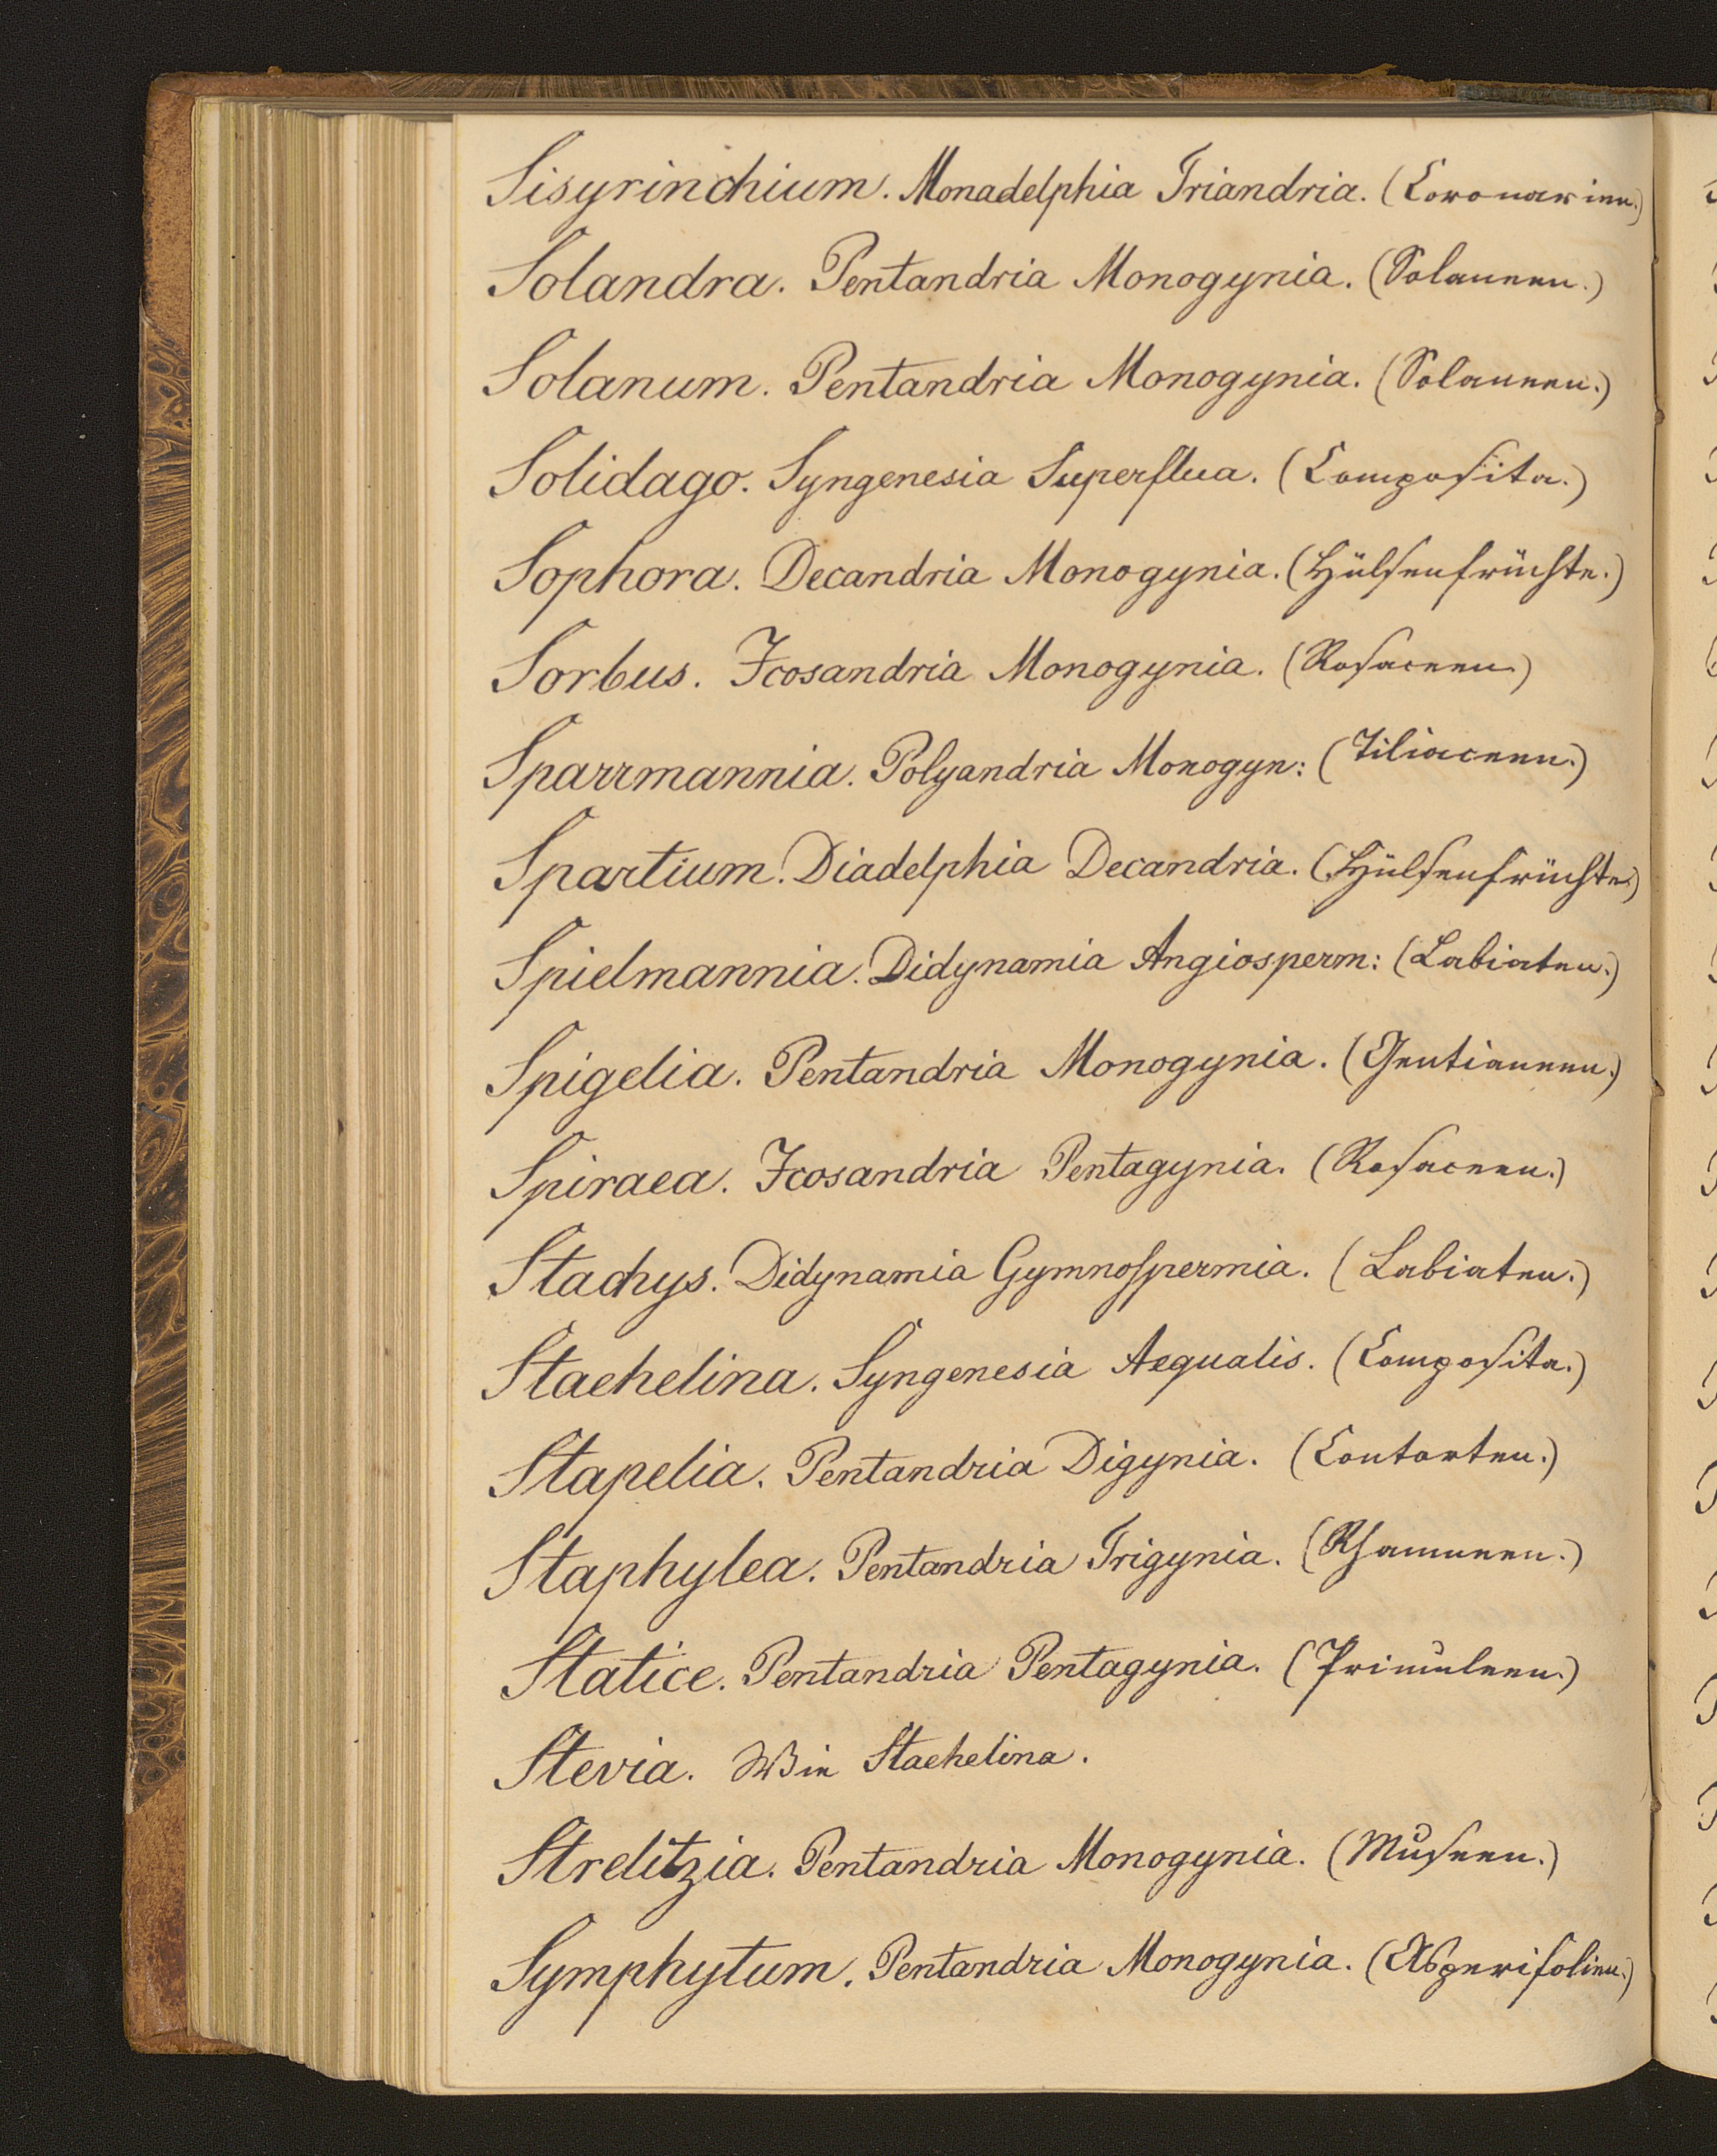 Sisyrinchium. Monadelphia Triandria. (Coronarien.)
Solandra. Pentandria Monogynia. (Solaneen.)
Solanum. Pentandria Monogynia. (Solaneen.)
Solidago. Syngenesia Superflua. (Composita.)
Sophora. Decandria Monogynia. (Hülsenfrüchte.)
Sorbus. Icosandria Monogynia. (Rosaceen.)
Sparrmannia. Polyandria Monogyn: (Tiliaceen.)
Spartium. Diadelphia Decandria. (Hülsenfrüchte.)
Spielmannia. Didynamia Angiosperm: (Labiaten.)
Spigelia. Pentandria Monogynia. (Gentianeen.)
Spiraea. Icosandria Pentagynia. (Rosaceen.)
Stachys. Didynamia Gymnospermia. (Labiaten.)
Staehelina. Syngenesia Aequalis. (Composita.)
Stapelia. Pentandria Digynia. (Contorten.)
Staphylea. Pentandria Trigynia. (Rhamneen.)
Statice. Pentandria Pentagynia. (Primuleen.)
Stevia. Wie Staehelina.
Strelitzia. Pentandria Monogynia. (Museen.)
Symphytum. Pentandria Monogynia. (Asperifolien.)